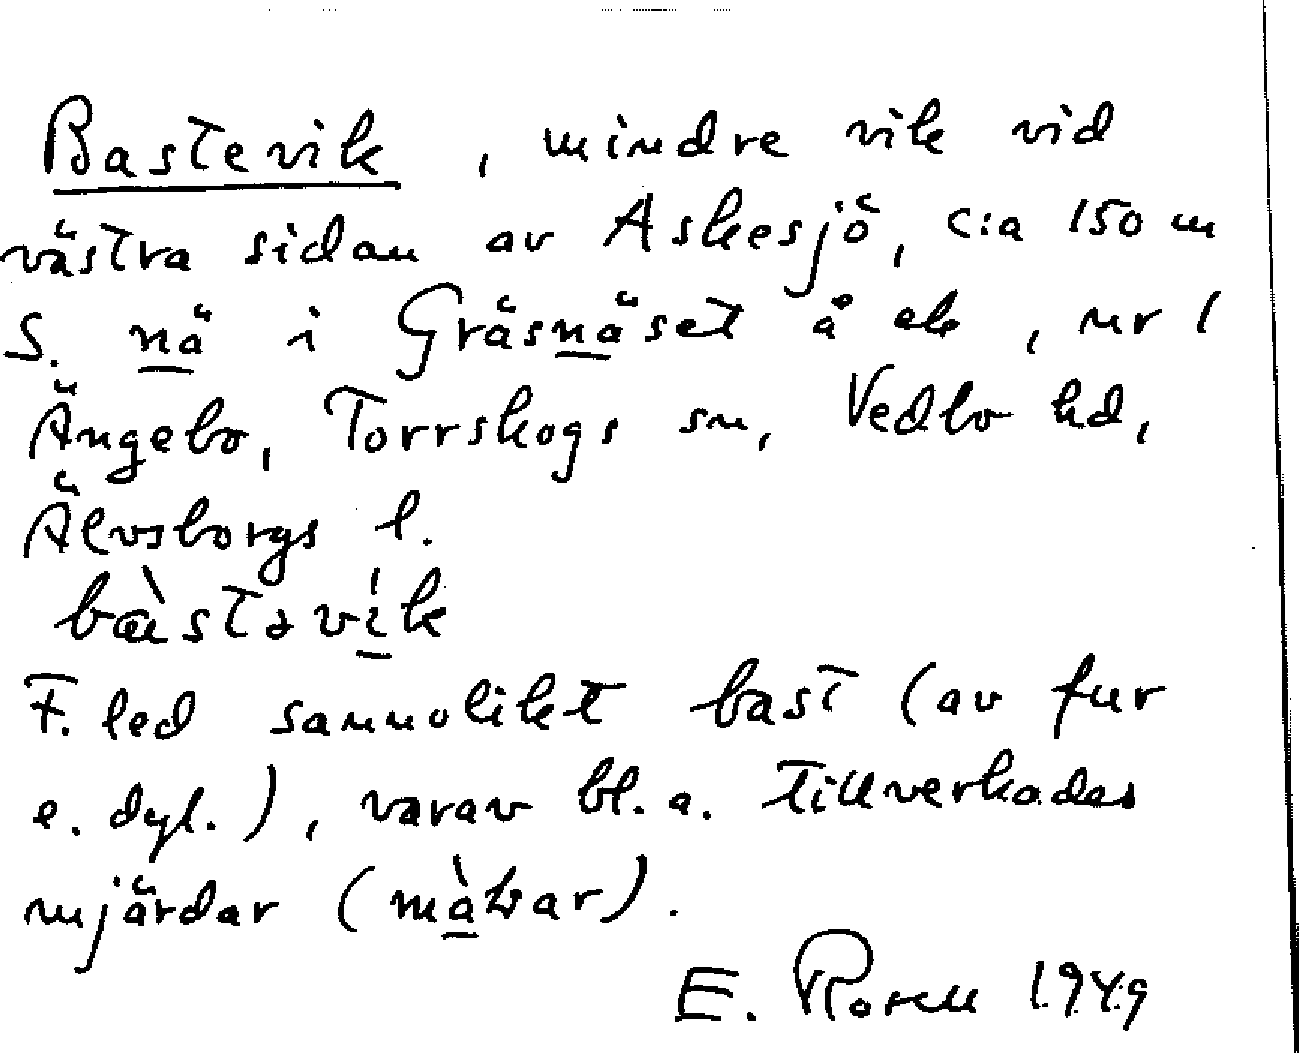 Bastevik, mindre vik vid
västra sidan av Askesjö, c:a 150 m
S. nä i Gräsnäset å ek, nr 1
Ängebo, Torrskogs sn, Vedbo hd,
Älvsborgs l.
bàstəvík
F. led sannolikt bast (av fur
e. dyl.), varav bl. a. tillverkades
mjärdar (
E. Rosell 1949